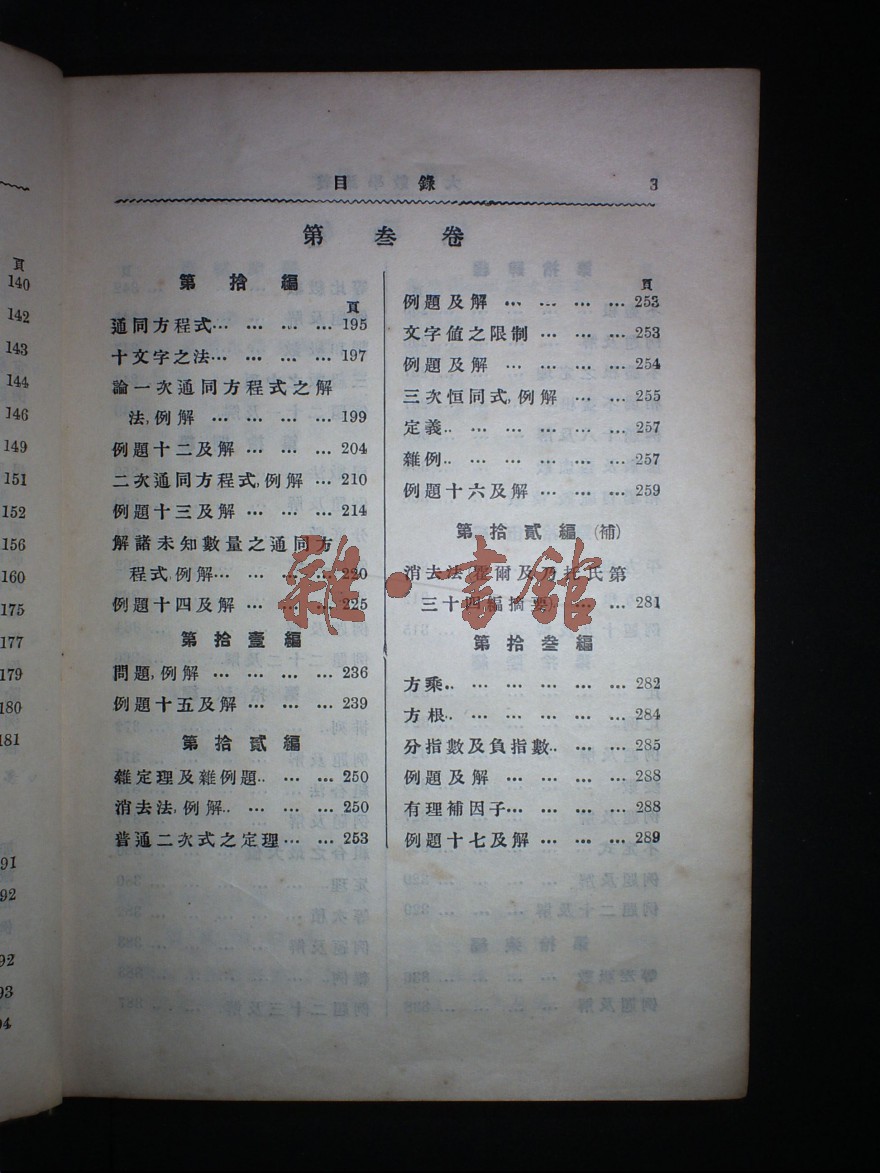 目錄 3
第叁卷
頁
140
142
143
144
146
149
151
152
156
160
175
177
179
180
181
91
92
92
93
94
第拾編
頁
通同方程式… … … … 195
十文字之法… … … … 197
論一次通同方程式之解
法,例解 … … … … 199
例題十二及解 … … … 204
二次通同方程式,例解 … 210
例題十三及解 … … … 214
解諸未知數量之通同方
程式,例解… … … … 220
例題十四及解 … … … 225
第拾壹編
問題,例解 … … … … 236
例題十五及解 … … … 239
第拾貳編
雜定理及雜例題.. … … 250
消去法,例解.. … … … 250
普通二次式之定理… … 253
頁
例題及解 … … … … 253
文字値之限制 … … … 253
例題及解 … … … … 254
三次恒同式,例解 … … 255
定義.. … … … … … 257
雜例.. … … … … … 257
例題十六及解 … … … 259
第拾貳編(補)
消去法,霍爾及乃托氏第
三十四編摘要) … … 281
第拾叁編
方乘.. … … … … … 282
方根.. … … … … … 284
分指數及負指數.. … … 285
例題及解 … … … … 288
有理補因子… … … … 288
例題十七及解 … … … 289
雜·書館